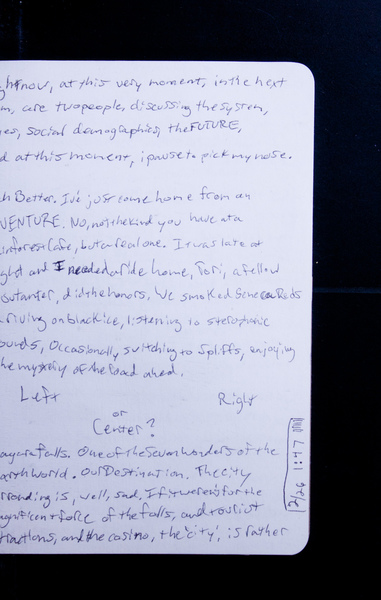 now, at this very moment, in the next
m, are two people, discussing the system,
es, social demographics, the FUTURE,
d at this moment, i pause to pick my nose.
h Better. I've just come home from an
VENTURE. No, not the kind you have at a
inforest Cafe, but a real one. It was late at
ght and I needed a ride home, Tori, a fellow
outanter, did the honors. We smoked
riving on black ice, listening to sterophonic
ounds, Occasionally switching to Spliffs, enjoying
he mystery of the road ahead.
Left Right
or
Center?
agara falls. One of the Seven Wonders of the
arth world. Our Destination. The city
rrounding is, well, sad, If it weren't for the
agnificent force of the falls, and tourist
tractions, and the casino, the 'city', is rather
2/26 1:47